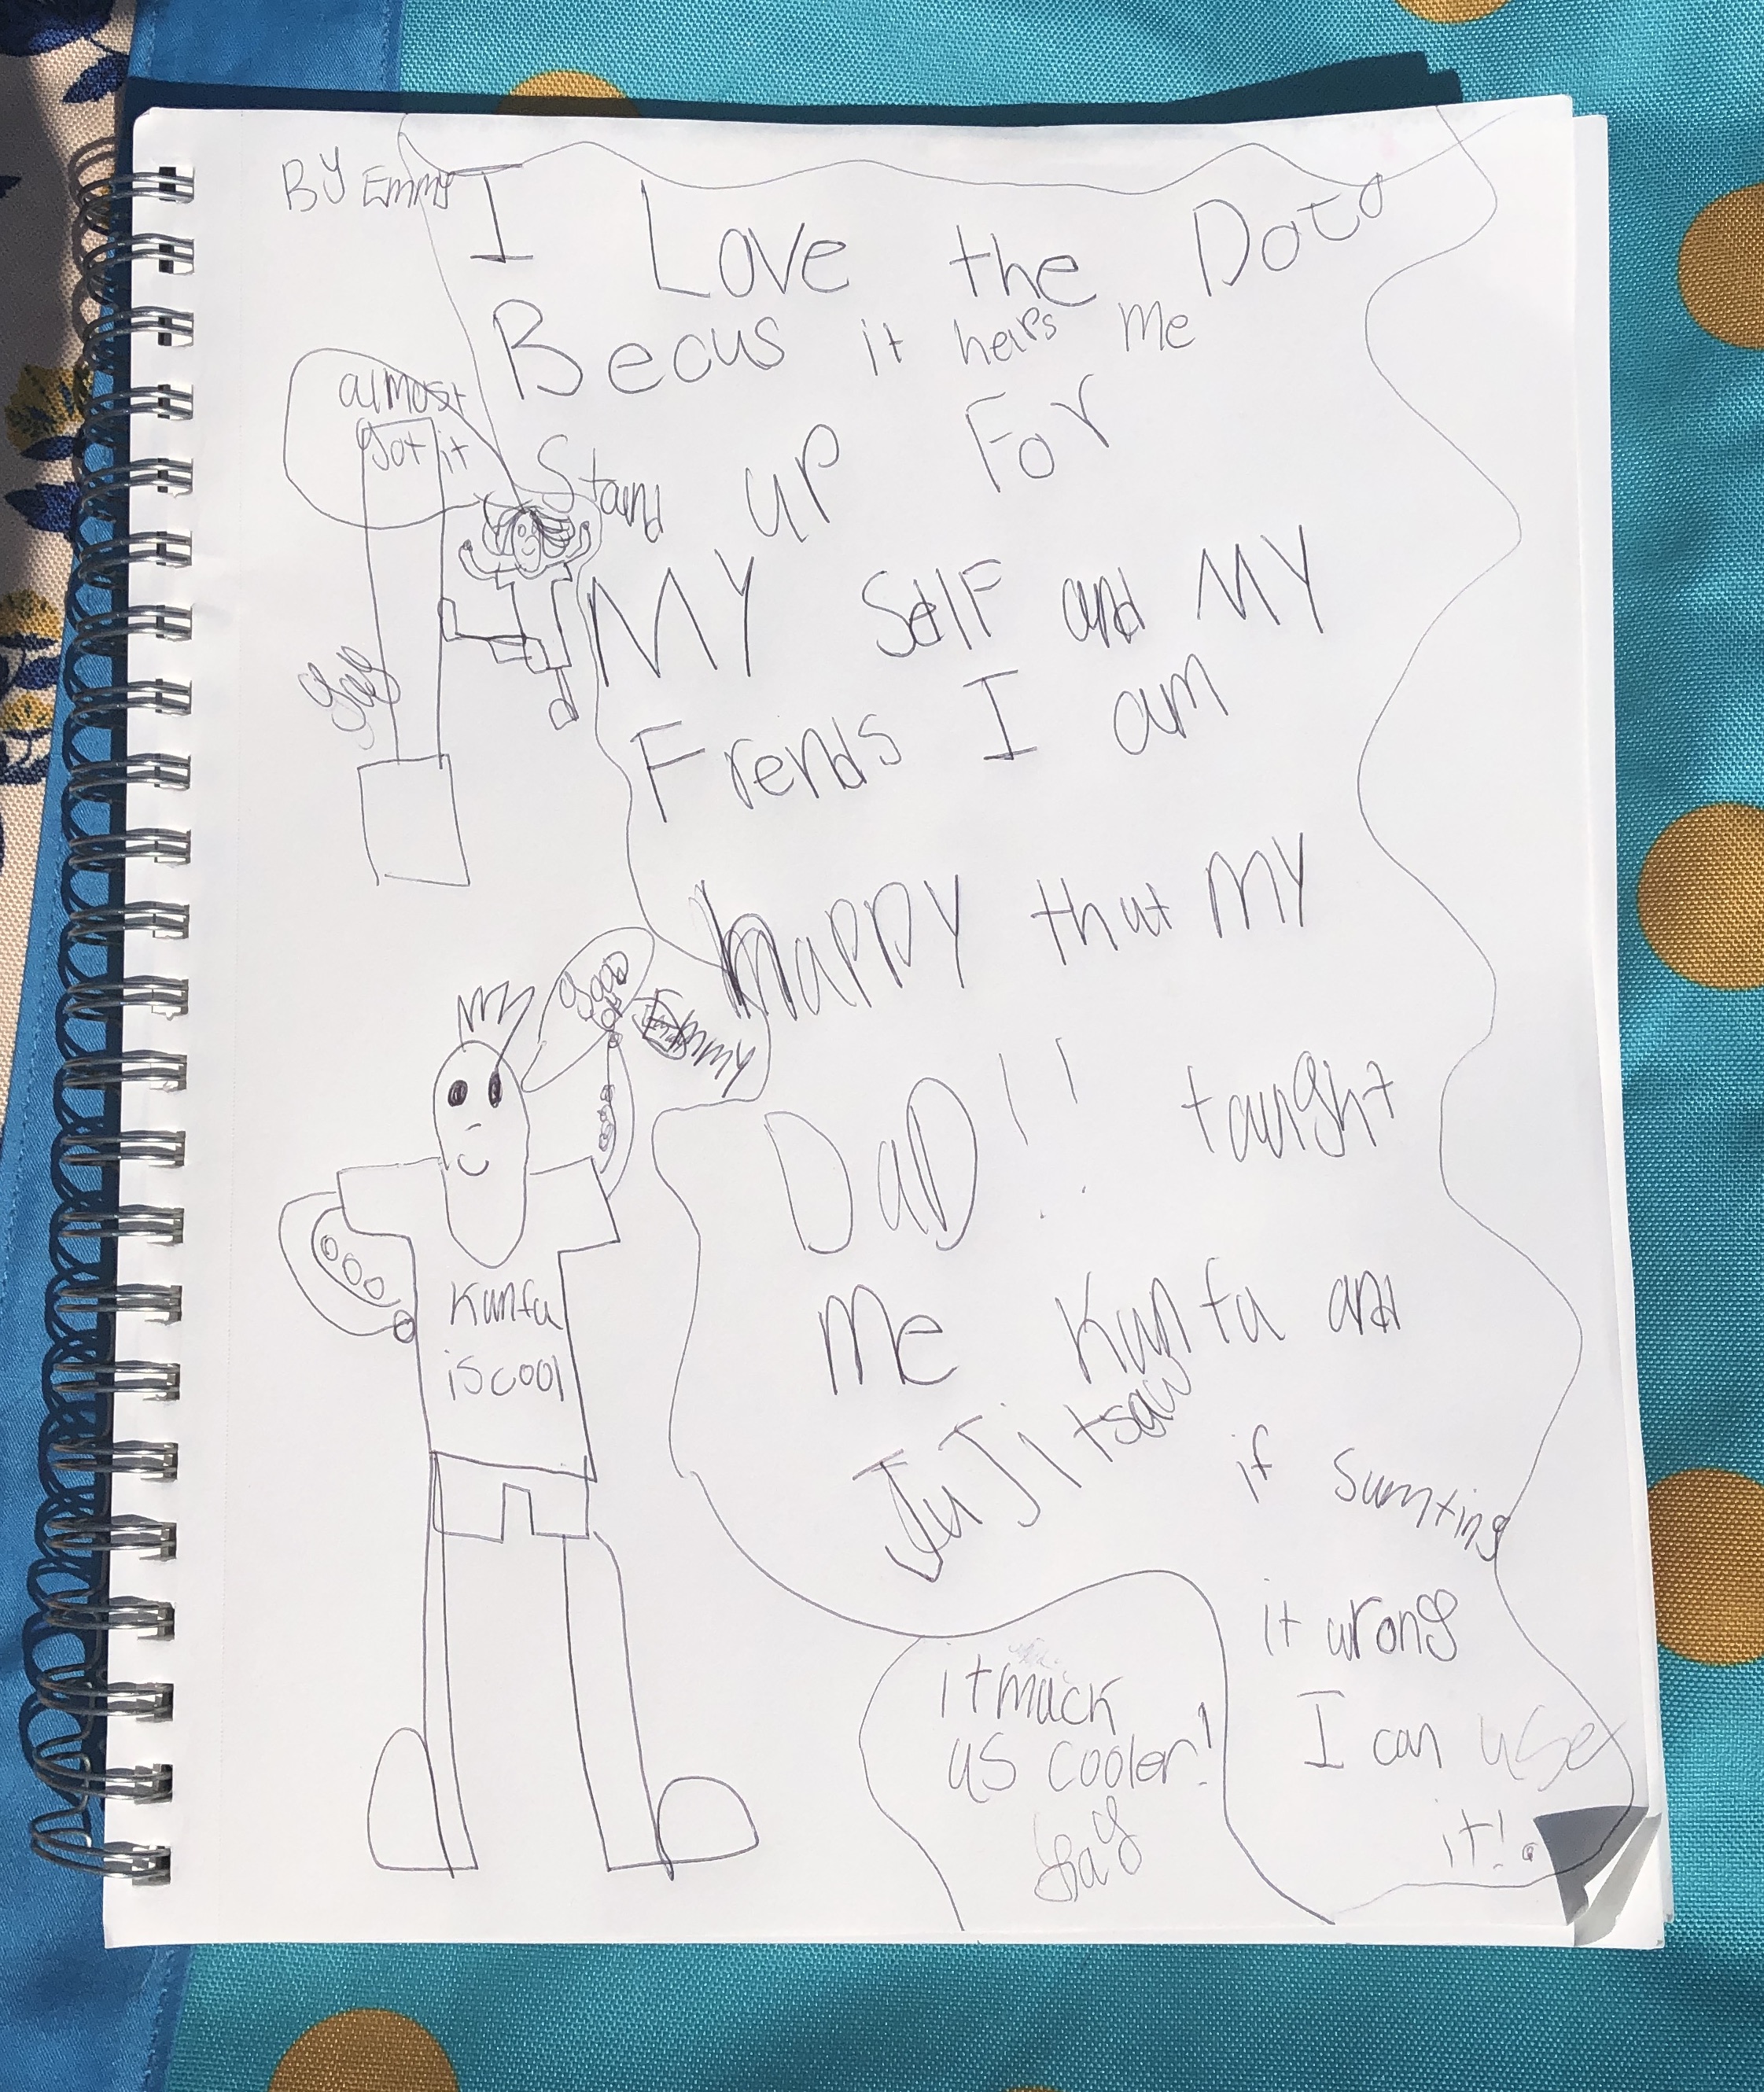 BY Emmy
I Love the Doto
Becus it helps me
Stand up For
MY Self and MY
Frends I am
happy that MY
DaD!! taught
me Kunfu and
JuJitsaw
if sumting
it wrong
I can use
it!
almost
got it
yay
good
job
Emmy
Kunfu
is cool
it muck
us cooler!
yay